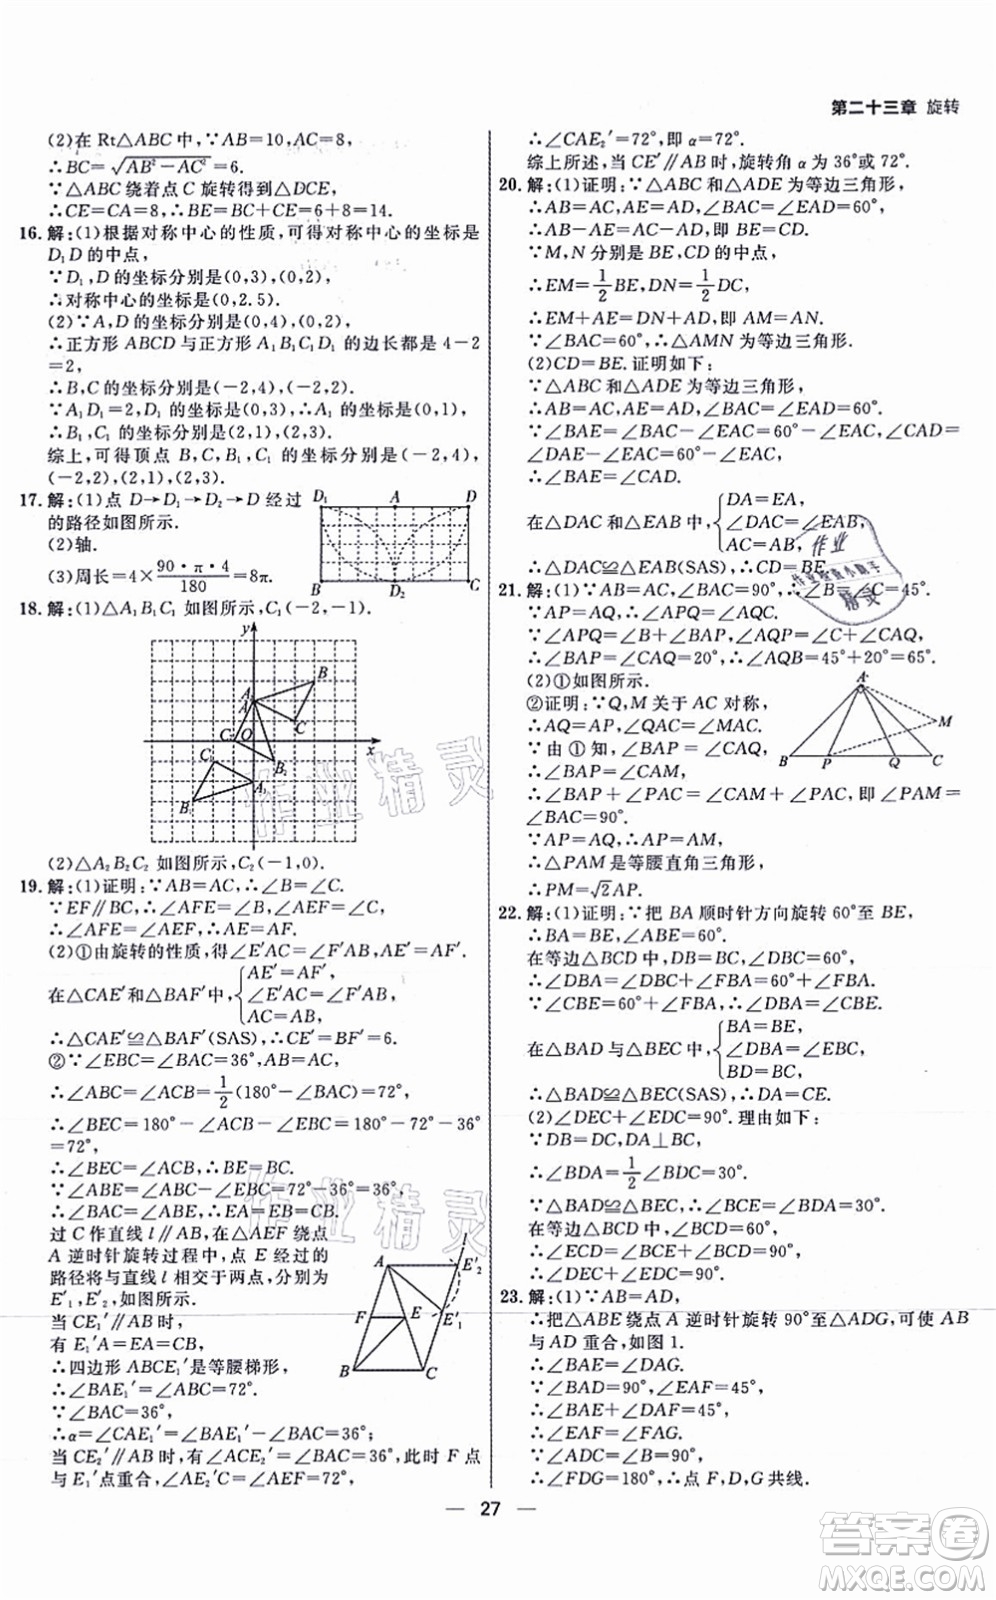 第二十三章 旋转
(2)在 Rt△ABC 中,∵AB=10,AC=8,
∴BC=√(AB²-AC²)=6.
∵△ABC 绕着点 C 旋转得到△DCE,
∴CE=CA=8,∴BE=BC+CE=6+8=14.
16.解:(1)根据对称中心的性质,可得对称中心的坐标是
D₁D 的中点,
∵D₁,D 的坐标分别是(0,3),(0,2),
∴对称中心的坐标是(0,2.5).
(2)∵A,D 的坐标分别是(0,4),(0,2),
∴正方形 ABCD 与正方形 A₁B₁C₁D₁ 的边长都是 4-2
=2,
∴B,C 的坐标分别是(-2,4),(-2,2),
∵A₁D₁=2,D₁ 的坐标是(0,3),∴A₁ 的坐标是(0,1),
∴B₁,C₁ 的坐标分别是(2,1),(2,3).
综上,可得顶点 B,C,B₁,C₁ 的坐标分别是(-2,4),
(-2,2),(2,1),(2,3).
17.解:(1)点 D→D₁→D₂→D 经过
的路径如图所示.
(2)轴.
(3)周长=4×90·π·4/180=8π.
D₁ A D
B D₂ C
18.解:(1)△A₁B₁C₁ 如图所示,B₁(-2,-1).
y
B
C
O
x
B₂
C₁
A₁
(2)△A₂B₂C₂ 如图所示,C₂(-1,0).
19.解:(1)证明:∵AB=AC,∴∠B=∠C.
∵EF∥BC,∴∠AFE=∠B,∠AEF=∠C,
∴∠AFE=∠AEF,∴AE=AF.
(2)①由旋转的性质,得∠E′AC=∠F′AB,AE′=AF′.
在△CAE′和△BAF′中,{AE′=AF′,
∠E′AC=∠F′AB,
AC=AB,
∴△CAE′≌△BAF′(SAS),∴CE′=BF′=6.
②∵∠EBC=∠BAC=36°,AB=AC,
∴∠ABC=∠ACB=1/2(180°-∠BAC)=72°.
∴∠BEC=180°-∠ACB-∠EBC=180°-72°-36°
=72°,
∴∠BEC=∠ACB,∴BE=BC.
∵∠ABE=∠ABC-∠EBC=72°-36°=36°,
∴∠BAC=∠ABE,∴EA=EB=CB.
过 C 作直线 l∥AB,在△AEF 绕点
A 逆时针旋转过程中,点 E 经过的
路径将与直线 l 相交于两点,分别为
E′₁,E′₂,如图所示.
当 CE₁′∥AB 时,
有 E₁′A=EA=CB.
∴四边形 ABCE₁′是等腰梯形,
∴∠BAE₁′=∠ABC=72°.
∵∠BAC=36°,
∴α=∠CAE₁′=∠BAE₁′-∠BAC=36°,
当 CE₂′∥AB 时,有∠ACE₂′=∠BAC=36°,此时 F 点
与 E₁′点重合,∠AE₂′C=∠AEF=72°,
A E′₂
F E E′₁
B C
∴∠CAE₂′=72°,即 α=72°.
综上所述,当 CE′∥AB 时,旋转角 α 为 36°或 72°.
20.解:(1)证明:∵△ABC 和△ADE 为等边三角形,
∴AB=AC,AE=AD,∠BAC=∠EAD=60°,
∴AB-AE=AC-AD,即 BE=CD.
∵M,N 分别是 BE,CD 的中点,
∴EM=1/2BE,DN=1/2DC,
∴EM+AE=DN+AD,即 AM=AN.
∵∠BAC=60°,∴△AMN 为等边三角形.
(2)CD=BE.证明如下:
∵△ABC 和△ADE 为等边三角形,
∴AB=AC,AE=AD,∠BAC=∠EAD=60°.
∵∠BAE=∠BAC-∠EAC=60°-∠EAC,∠CAD=
∠DAE-∠EAC=60°-∠EAC,
∴∠BAE=∠CAD.
在△DAC 和△EAB 中,{DA=EA,
∠DAC=∠EAB,
AC=AB,
∴△DAC≌△EAB(SAS),∴CD=BE.
21.解:(1)∵AB=AC,∠BAC=90°,∴∠B=∠C=45°.
∵AP=AQ,∴∠APQ=∠AQC.
∵∠APQ=∠B+∠BAP,∠AQP=∠C+∠CAQ,
∴∠BAP=∠CAQ=20°,∴∠AQB=45°+20°=65°.
(2)①如图所示.
②证明:∵Q,M 关于 AC 对称,
∴AQ=AP,∠QAC=∠MAC.
∵由 ① 知,∠BAP=∠CAQ,
∴∠BAP=∠CAM,
∴∠BAP+∠PAC=∠CAM+∠PAC,即∠PAM=
∠BAC=90°.
∵AP=AQ,∴AP=AM,
∴△PAM 是等腰直角三角形,
∴PM=√2AP.
A
M
B P Q C
22.解:(1)证明:∵把 BA 顺时针方向旋转 60°至 BE,
∴BA=BE,∠ABE=60°.
在等边△BCD 中,DB=BC,∠DBC=60°,
∴∠DBA=∠DBC+∠FBA=60°+∠FBA.
∵∠CBE=60°+∠FBA,∴∠DBA=∠CBE.
在△BAD 与△BEC 中,{BA=BE,
∠DBA=∠EBC,
BD=BC,
∴△BAD≌△BEC(SAS),∴DA=CE.
(2)∠DEC+∠EDC=90°.理由如下:
∵DB=DC,DA⊥BC,
∴∠BDA=1/2∠BDC=30°.
∵△BAD≌△BEC,∴∠BCE=∠BDA=30°.
在等边△BCD 中,∠BCD=60°,
∴∠ECD=∠BCE+∠BCD=90°,
∴∠DEC+∠EDC=90°.
23.解:(1)∵AB=AD,
∴把△ABE 绕点 A 逆时针旋转 90°至△ADG,可使 AB
与 AD 重合,如图 1.
∴∠BAE=∠DAG.
∵∠BAD=90°,∠EAF=45°,
∴∠BAE+∠DAF=45°,
∴∠EAF=∠FAG.
∵∠ADC=∠B=90°,
∴∠FDG=180°,∴点 F,D,G 共线.
— 27 —
作业精灵
作业精灵
答案圈
MXQE.COM